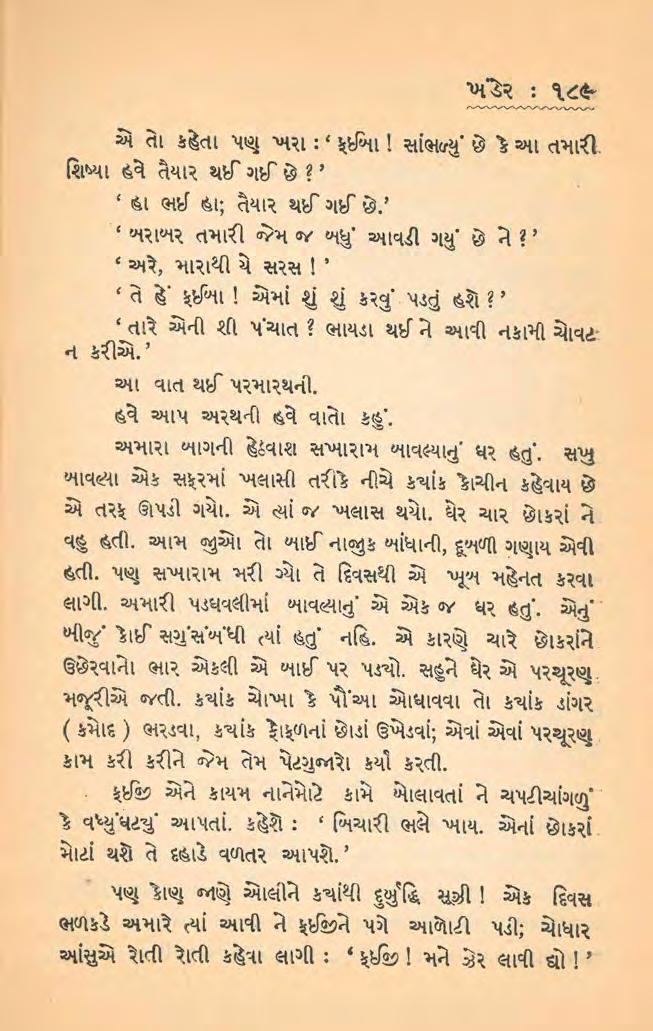 ખંડેર : ૧૮૯
એ તો કહેતા પણ ખરા : ‘ ફઈબા ! સાંભળ્યું છે કે આ તમારી
શિષ્યા હવે તૈયાર થઈ ગઈ છે ? ’
‘ હા ભઈ હા; તૈયાર થઈ ગઈ છે.’
‘ બરાબર તમારી જેમ જ બધું આવડી ગયું છે ને ? ’
‘ અરે, મારાથી યે સરસ ! ’
‘ તે હેં ફઈબા ! એમાં શું શું કરવું પડતું હશે ? ’
‘ તારે એની શી પંચાત ? ભાયડા થઈ ને આવી નકામી ચોવટ
ન કરીએ. ’
આ વાત થઈ પરમારથની.
હવે આપ અરથની હવે વાતો કહું.
અમારા બાગની હેઠવાશ સખારામ બાવલ્યાનું ઘર હતું. સખુ
બાવલ્યા એક સફરમાં ખલાસી તરીકે નીચે કયાંક કોચીન કહેવાય છે
એ તરફ ઊપડી ગયો. એ ત્યાં જ ખલાસ થયો. ઘેર ચાર છોકરાં ને
વહુ હતી. આમ જુઓ તો બાઈ નાજુક બાંધાની, દૂબળી ગણાય એવી
હતી. પણ સખારામ મરી ગ્યો તે દિવસથી એ ખૂબ મહેનત કરવા
લાગી. અમારી પડઘવલીમાં બાવલ્યાનું એ એક જ ઘર હતું. એનું
બીજું કોઈ સગુંસંબંધી ત્યાં હતું નહિ. એ કારણે ચારે છોકરાંને
ઉછેરવાનો ભાર એકલી એ બાઈ પર પડ્યો. સહુને ઘેર એ પરચૂરણ
મજૂરીએ જતી. કયાંક ચોખા કે પૌંઆ ઓઘાવવા તો કયાંક ડાંગર
( કમોદ ) ભરડવા, કયાંક ફોફળનાં છોડાં ઉખેડવાં; એવાં એવાં પરચૂરણ
કામ કરી કરીને જેમ તેમ પેટગુજારો કર્યા કરતી.
ફઈજી એને કાયમ નાનેમોટે કામે બોલાવતાં ને ચપટીચાંગળું
કે વધ્યુંઘટયું આપતાં. કહેશે : ‘ બિચારી ભલે ખાય. એનાં છોકરાં
મોટાં થશે તે દહાડે વળતર આપશે. ’
પણ કોણ જાણે ઓલીને કયાંથી દુર્બુદ્ધિ સૂઝી ! એક દિવસ
ભળકડે અમારે ત્યાં આવી ને ફઈજીને પગે આળોટી પડી; ચોધાર
આંસુએ રોતી રોતી કહેવા લાગી : ‘ ફઈજી ! મને ઝેર લાવી દ્યો ! ’